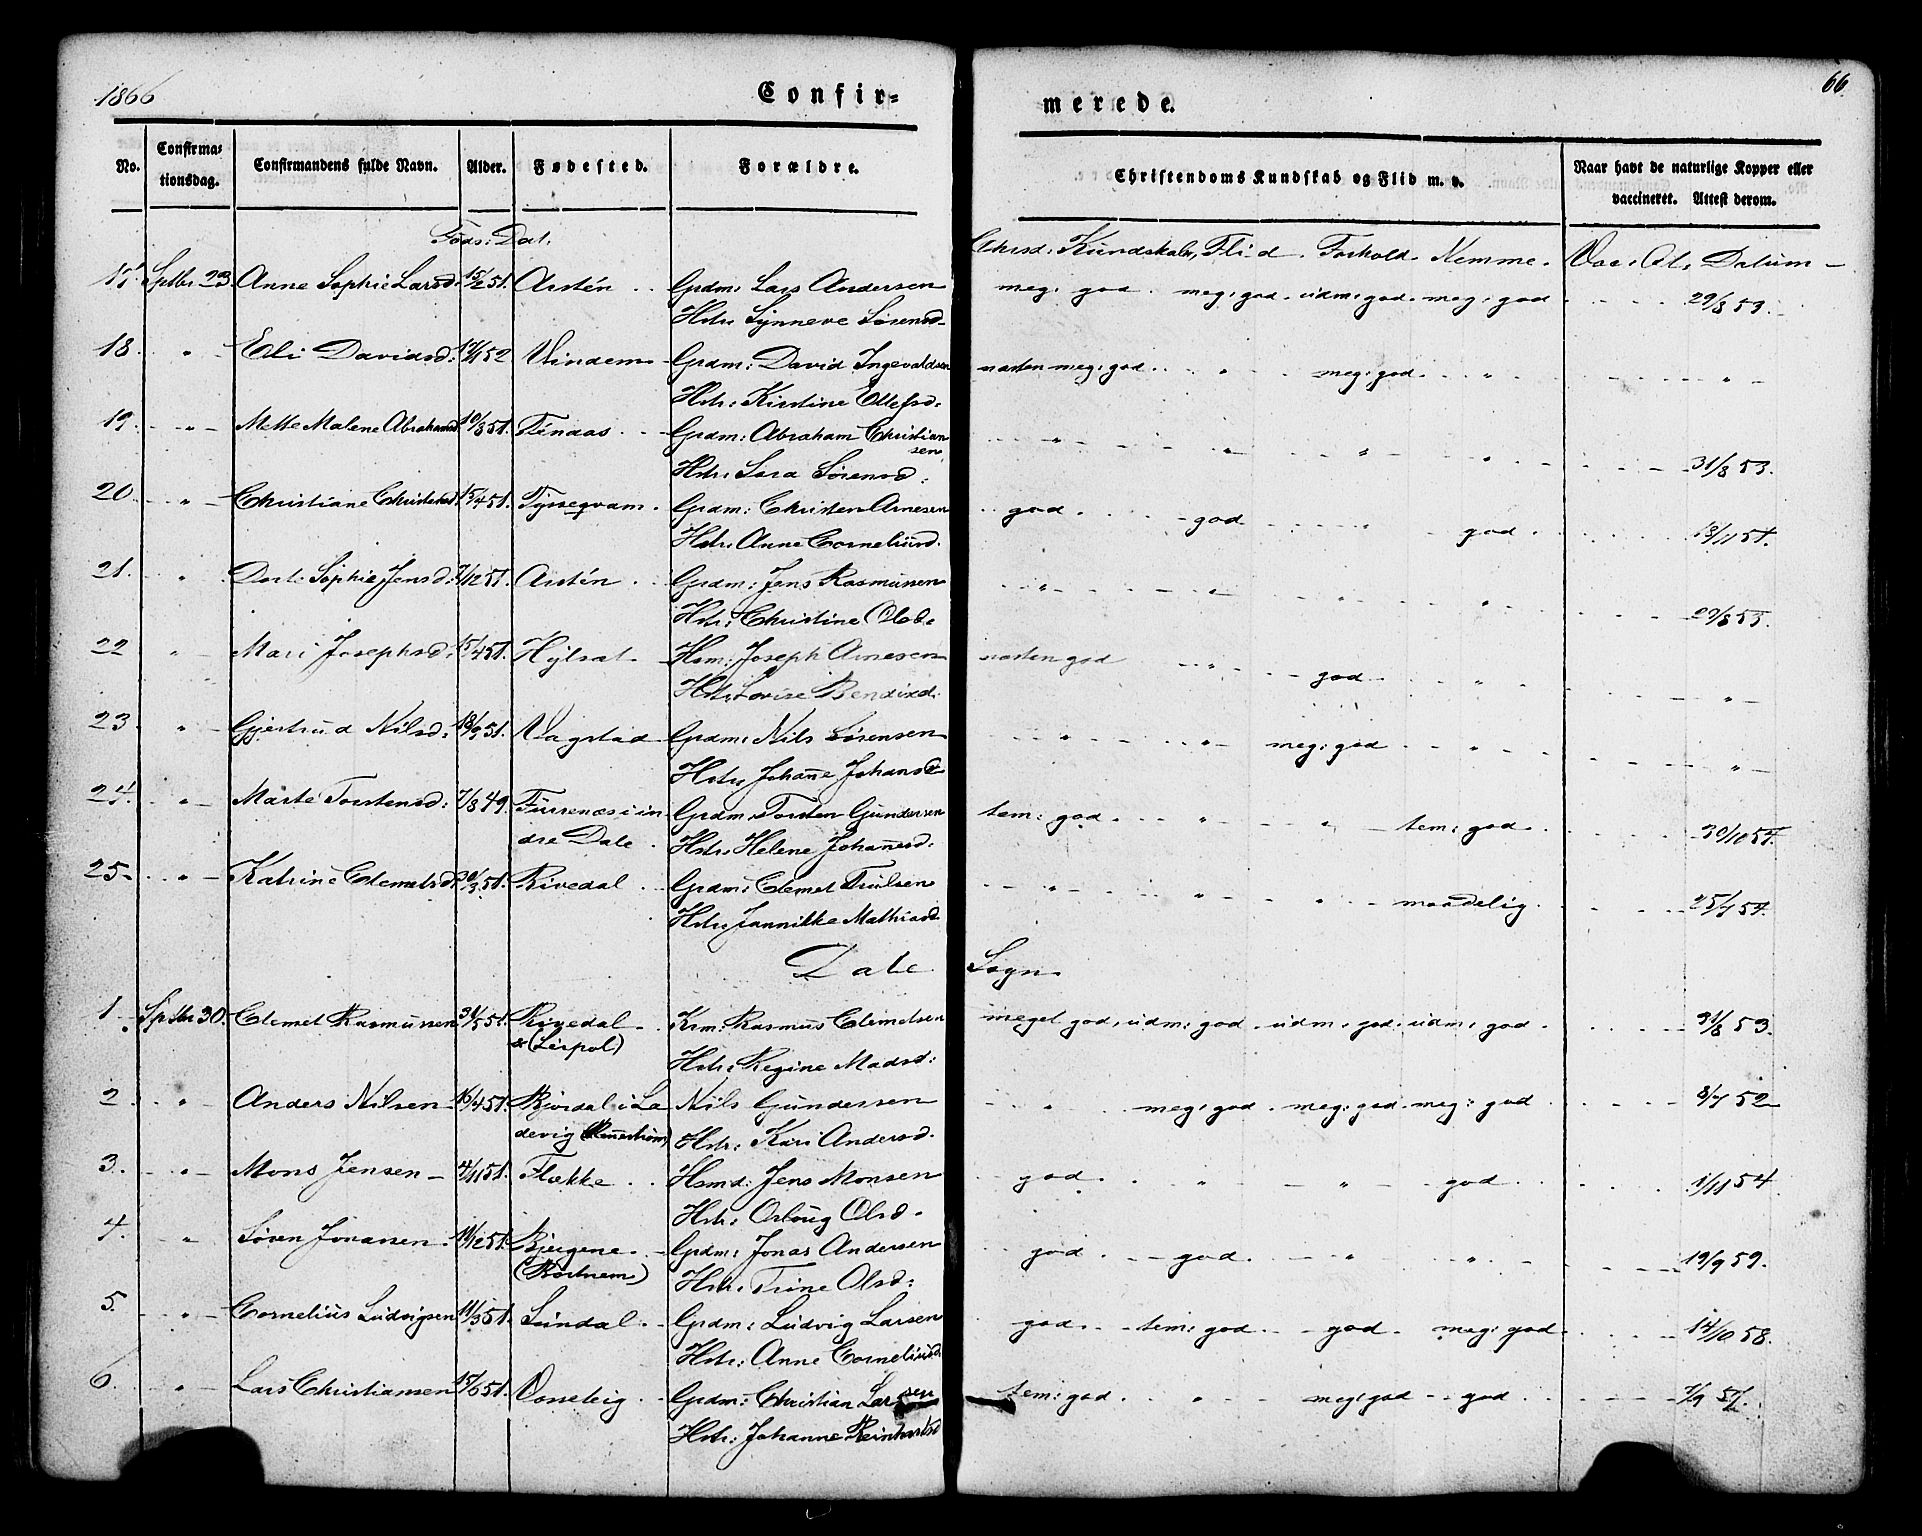 1866
66
Confir=
merede.
No.
Confirma=
tionsdag.
Confirmandens fulde Navn.
Alder.
Fødested.
Forældre.
Christendoms Kundskab og Flid m. v.
Naar havt de naturlige Kopper eller
vaccineret. Attest derom.
Føds: Dat.
Christ: Kundskab, Flid. Forhold. Nemme. Vac: At, Datum
17. Sptbr 23. Anne Sophie Larsd: 15/2 51. Askén Grdm: Lars Andersen meg: god. meg: god. udm: god. meg: god 29/8 53.
Hstr: Synneve Sørensd.
18. " Eli Davidsd: 52 Vindem Grdm: David Ingevaldsen næsten meg: god. " meg: god. " "
Hstr: Kirstine Ellefsd.
19. " Mette Malene Abrahamsd. 10/3 51. Téndaas Grdm: Abraham Christian
sen " " " " 31/8 53.
Hstr: Sara Sørensd.
20. " Christiane Christensd 15/4 51. Tyssegvam. Grdm: Christen Arnesen god. god god. 13/11 51.
Hstr: Anne Corneliusd.
21. " Dorte Sophie Jensd: 7/12 51. Askén Grdm: Jens Rasmussen " " " " 29/8 53.
Hstr: Christine Olsd.
22 " Mari Josephsd. 15/4 51. Hylsæt Hsm: Joseph Arnesen næsten god " god. " "
Hstr: Lovise Bendixd.
23. " Gjertrud Nilsd: 18/9 51. Vagstad Grdm: Nils Sørensen " " meg: god " "
Hstr: Johanne Johansd.
24. " Märte Torstensd: 7/8 49. Furrenæs i in Grdm: Torsten Gundersen tem: god. " " tem: god. 30/10 54.
dre Dale. Hstr: Helene Johannesd:
25. " Katrine Clemetsd. 20/3 51. Rivedal Grdm: Clemet Trulsen " " " maadelig. 25/7 54.
Hstr: Jannikke Mathiasd.
Dale Sogn
1. Sptbr 30. Clemet Rasmussen 31/5 51. Rivedal Krm: Rasmus Clemetsen meget god, udm: god. udm: god. udm: god. 31/8 53.
(Leirpol) Hstr: Regine Madsd:
2. " Anders Nilsen 16/4 51. Rivedal i La Nils Gundersen " meg: god. meg: god. meg: god 8/7 52
devig Hstr: Kari Andersd.
3. " Mons Jensen 4/11 51. Flekke Hsmd: Jens Monsen god. " " god. 1/11 54
Hstr: Oslaug Olsd.
4. " Søren Jonassen. 11/12 51. Bjergene Grdm: Jonas Andersen god. god. " " 19/9 59.
Hstr: Trine Olsd:
5. " Cornelius Ludvigsen 11/3 51. Sundal Grdm: Ludvig Larsen god. tem: god. god. meg: god. 14/10 58.
Hstr: Anne Corneliusd.
6. " Lars Christiansen 15/6 51. Vosseteig Grdm: Christian Larsen tem: god. " meg: god god. 7/9 57.
Hstr: Johanne Reinhardsd